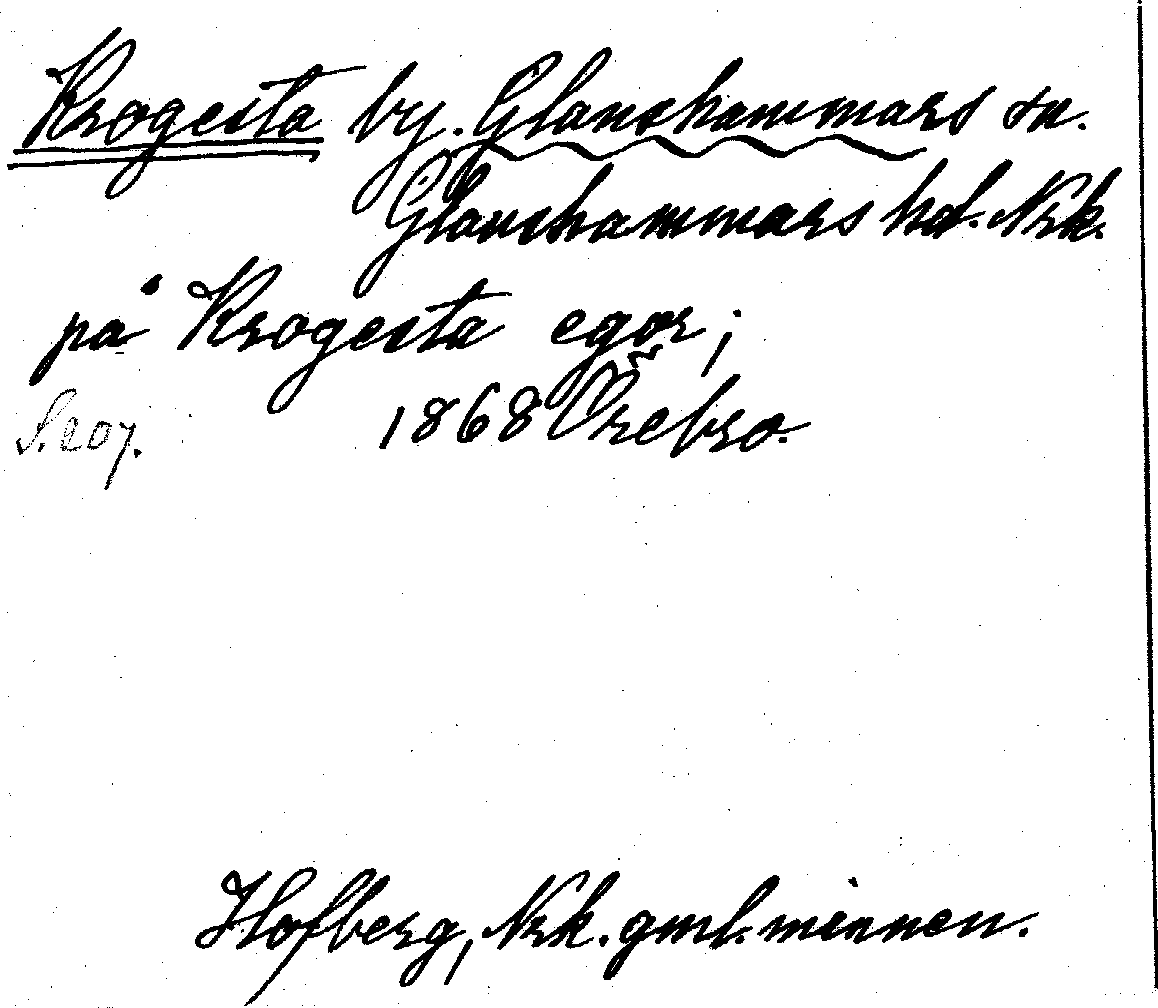 Krogesta by. Glanshammars sn.
Glanshammars hd. Nrk.
på Krogesta egor;
S. 207. 1868 Örebro.
Hofberg, Nrk. gml. minnen.